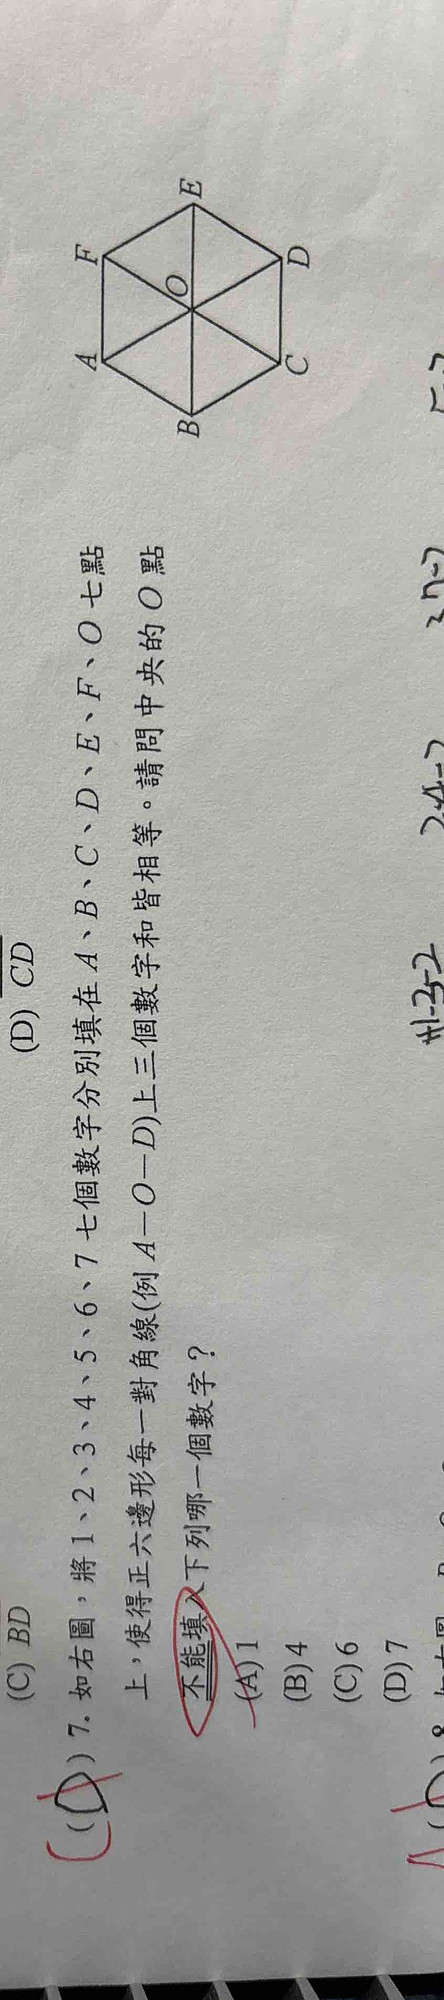 (C) BD
(D) CD
( D ) 7. 如右圖，將 1、2、3、4、5、6、7 七個數字分別填在 A、B、C、D、E、F、O 七點
上，使得正六邊形每一對角線(例 A－O－D)上三個數字和皆相等。請問中央的 O 點
不能填入下列哪一個數字？
(A) 1
(B) 4
(C) 6
(D) 7
A
F
B
O
E
C
D